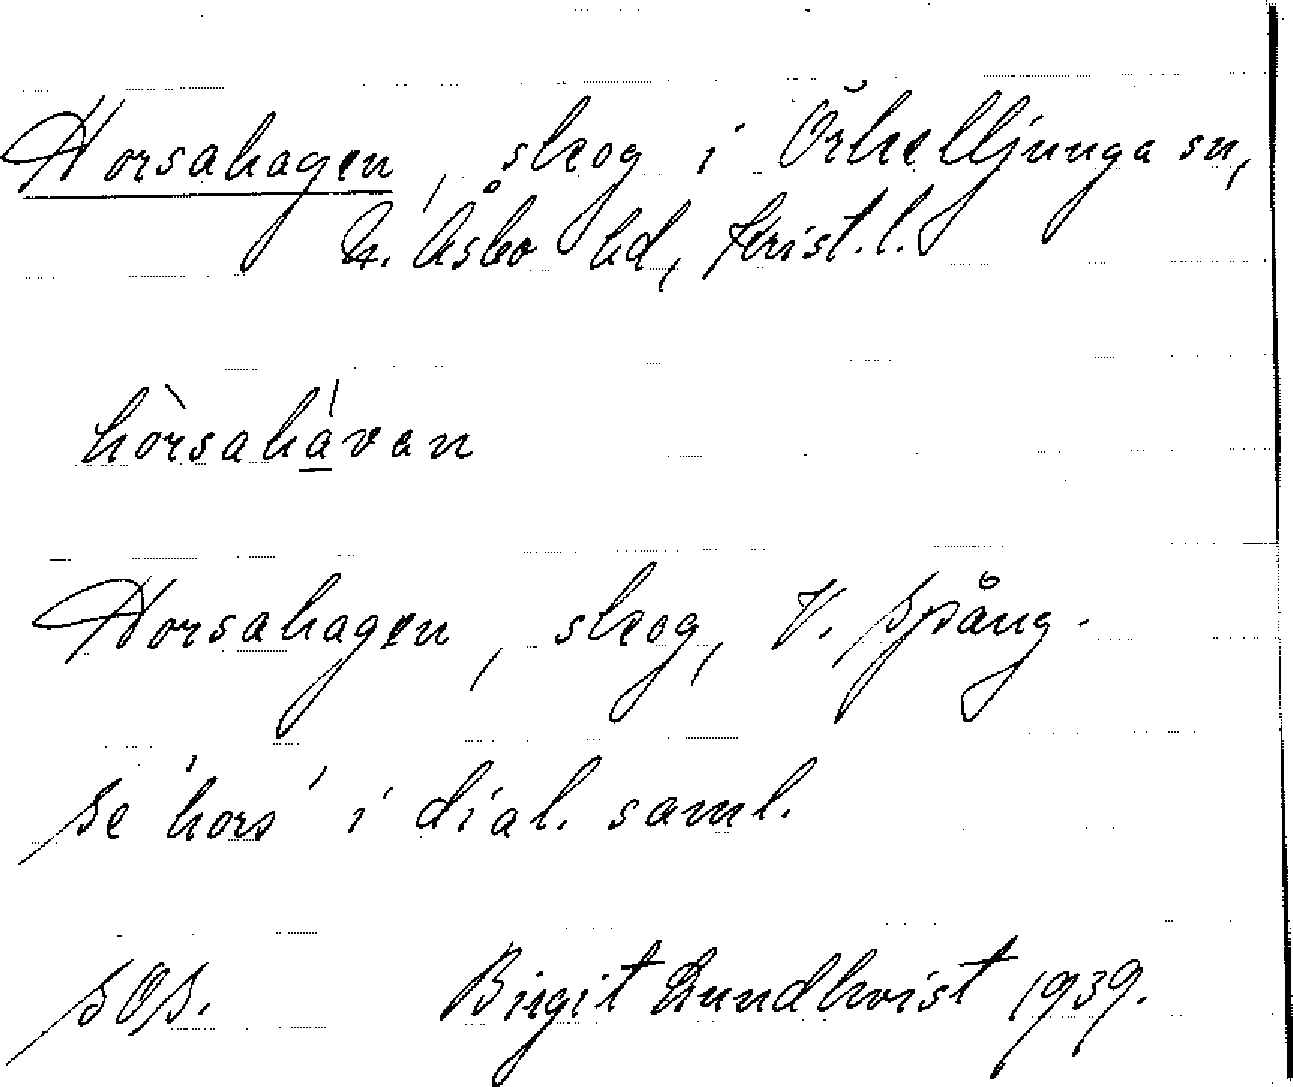 Horsahagen, skog i Örkelljunga sn,
N. Åsbo hd, Krist. l.
hòrsahá̱van
Horsahagen, skog, V. Spång.
Se 'hors' i dial. saml.
SOS. Birgit Lundkvist 1939.